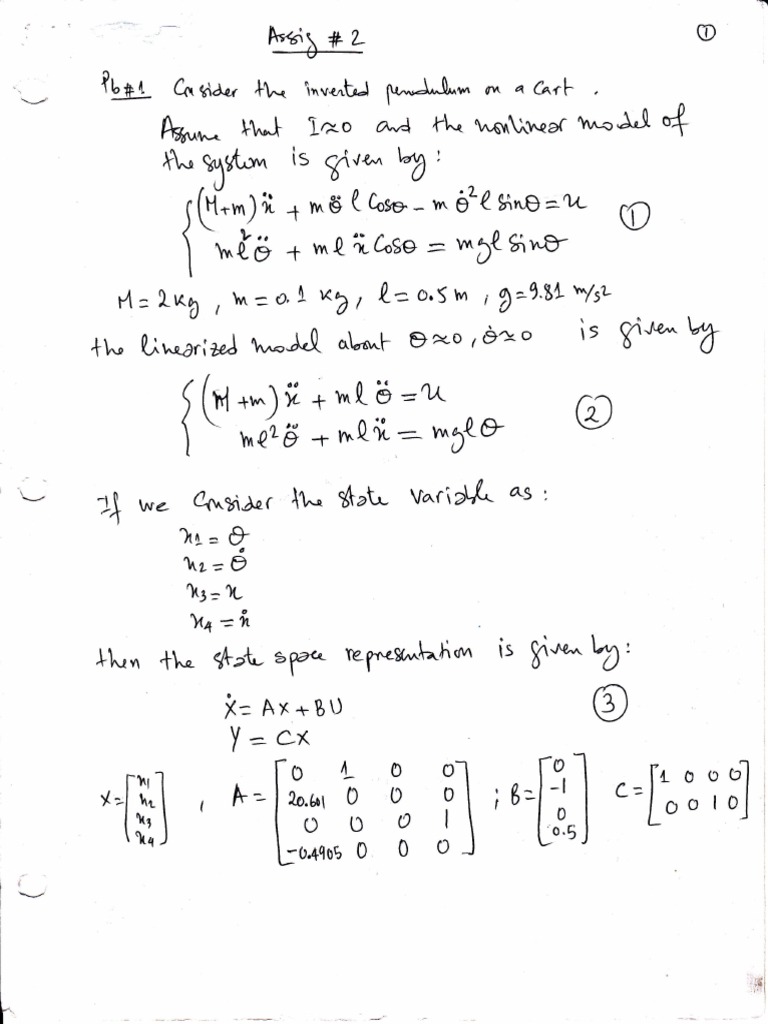 Assig # 2
①
Pb#1 Consider the inverted pendulum on a cart .
Assume that I≈0 and the nonlinear model of
the system is given by :
{ (M+m)ẍ + mθ̈ l Cosθ – m θ̇² l Sinθ = u ①
ml²θ̈ + ml ẍ Cosθ = mgl Sinθ
M = 2 kg , m = 0.1 kg , l = 0.5 m , g = 9.81 m/s²
the linearized model about θ≈0 , θ̇≈0 is given by
{ (M+m)ẍ + ml θ̈ = u ②
ml²θ̈ + mlẍ = mglθ
If we Consider the state variable as :
x1 = θ
x2 = θ̇
x3 = x
x4 = ẋ
then the state space representation is given by :
Ẋ = AX + BU ③
Y = CX
X = [x1 x2 x3 x4] , A = [0 1 0 0; 20.601 0 0 0; 0 0 0 1; -0.4905 0 0 0] ; B = [0 -1 0 0.5] C = [1 0 0 0; 0 0 1 0]